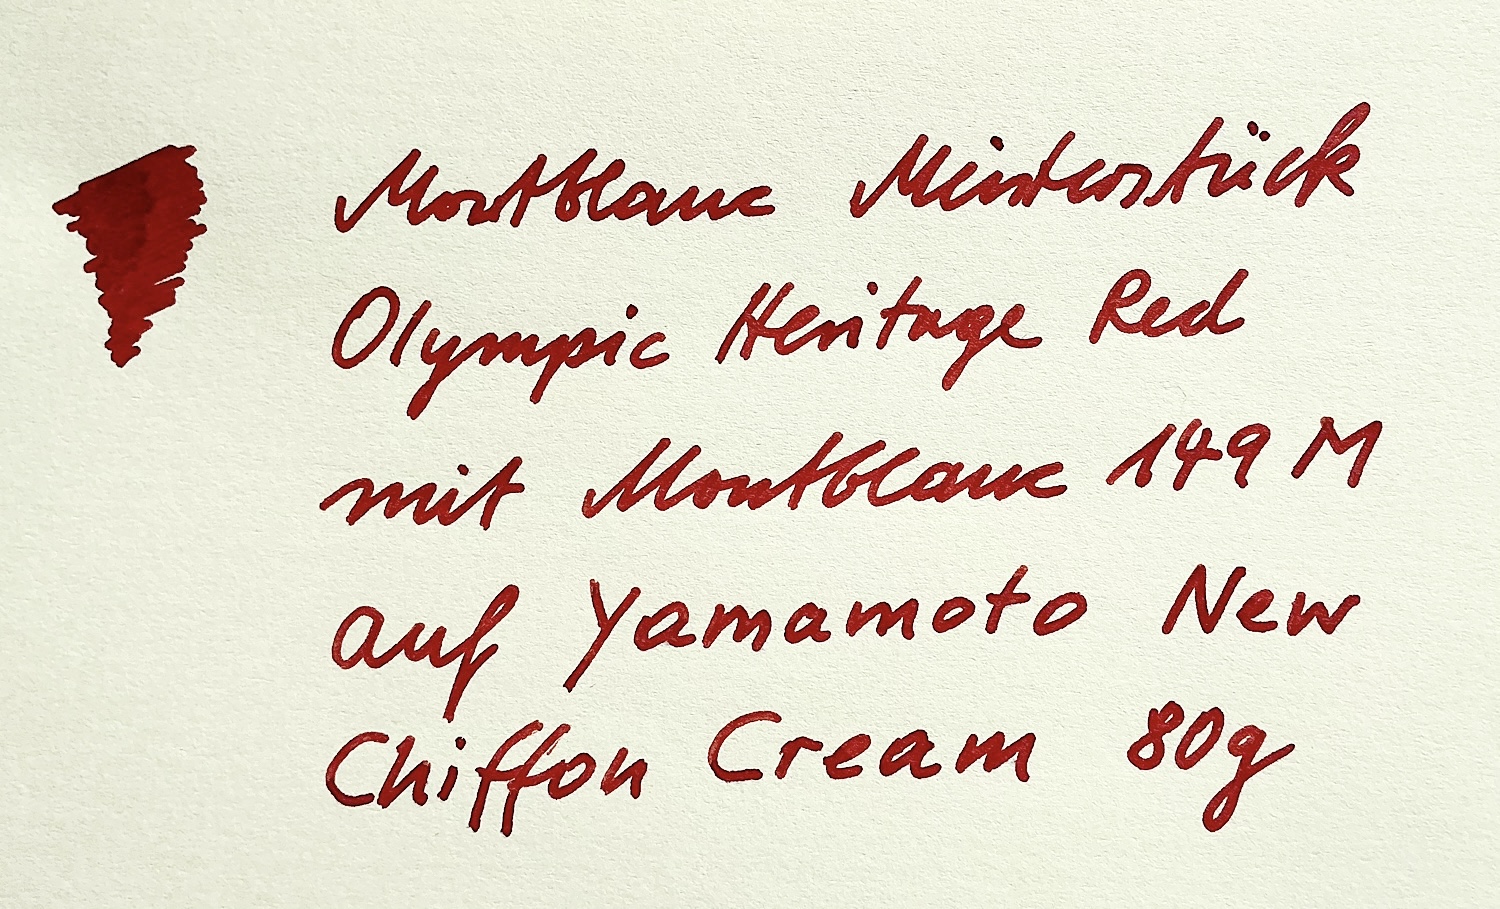 Montblanc Meisterstück
Olympic Heritage Red
mit Montblanc 149 M
auf Yamamoto New
Chiffon Cream 80g